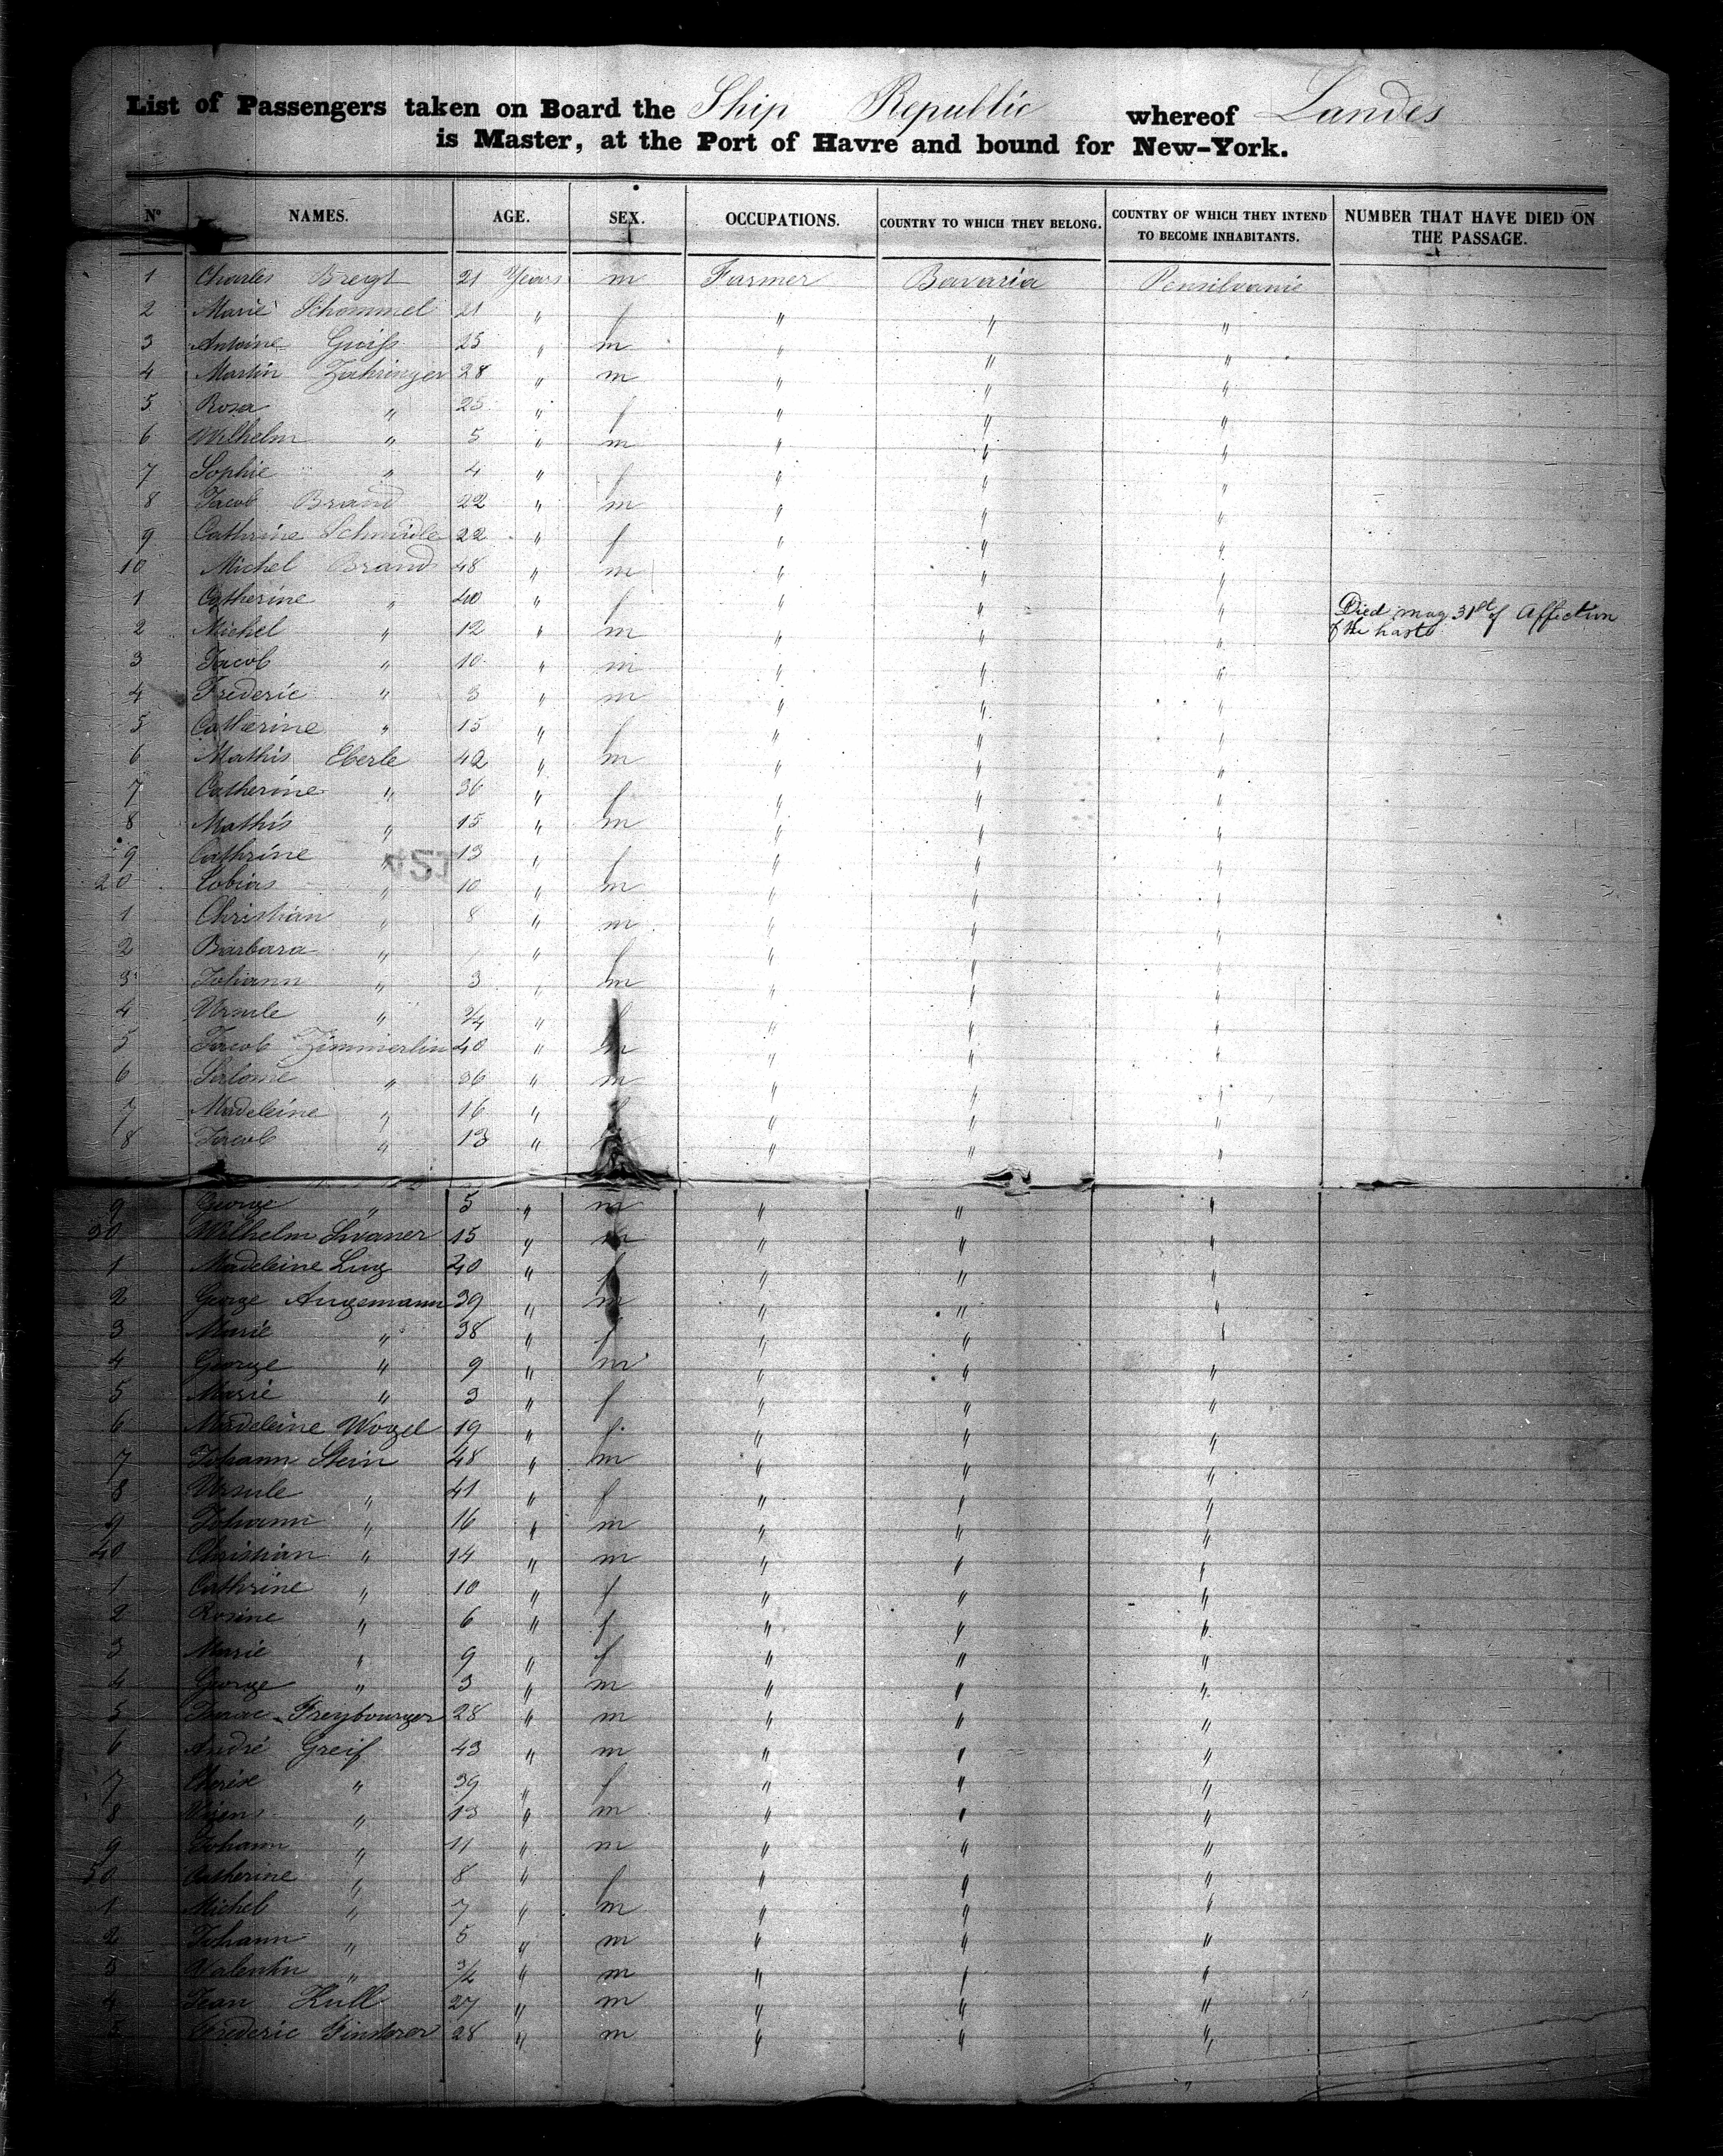 List of Passengers taken on Board the Ship Republic whereof Landes
is Master, at the Port of Havre and bound for New-York.
Nº NAMES. AGE. SEX. OCCUPATIONS. COUNTRY TO WHICH THEY BELONG. COUNTRY OF WHICH THEY INTEND TO BECOME INHABITANTS. NUMBER THAT HAVE DIED ON THE PASSAGE.
1 Charles 21 Years m Farmer Bavaria Pensilvanie
2 Marie Schommel 21 " f " " "
3 Antoine 25 " m " " "
4 Martin Zahringer 28 " m " " "
5 Rosa " 25 " f " " "
6 Wilhelm " 5 " m " " "
7 Sophie " 4 " f " " "
8 Jacob Brand 22 " m " " "
9 Cathrine Schmidle 22 " f " " "
10 Michel Brand 48 " m " " "
1 Catherine " 40 " f " " " Died may 31st of Affection
2 Michel " 12 " m " " " of the
3 Jacob " 10 " m " " "
4 Frederic " 3 " m " " "
5 Catherine " 15 " f " " "
6 Mathis Eberle 42 " m " " "
7 Catherine " 36 " f " " "
8 Mathis " 15 " m " " "
9 Cathrine " 13 " f " " "
20 Tobias " 10 " m " " "
1 Christian " 8 " m " " "
2 Barbara " " f " " "
3 Johann " 3 " m " " "
4 Ursule " 3/4 " f " " "
5 Jacob Zimmerlin 40 " m " " "
6 Salome " 36 " m " " "
7 Madeleine " 16 " f " " "
8 Jacob " 13 " " " "
9 George " 5 " m " " "
30 Wilhelm 15 " m " " "
1 Madeleine Lug 40 " f " " "
2 George Angemann 39 " m " " "
3 Marie " 38 " f " " "
4 George " 9 " m " " "
5 Marie " 3 " f " " "
6 Madeleine Wogel 19 " f " " "
7 Johann Stein 48 " m " " "
8 Ursule " 41 " f " " "
9 Johann " 16 " m " " "
40 Christian " 14 " m " " "
1 Cathrine " 10 " f " " "
2 Rosine " 6 " f " " "
3 Marie " 9 " f " " "
4 George " 3 " m " " "
5 Freybourger 28 " m " " "
6 André Greif 43 " m " " "
7 Therese " 39 " f " " "
8 " 13 " m " " "
9 Johann " 11 " m " " "
50 Catherine " 8 " f " " "
1 Michel " 7 " m " " "
2 Johann " 5 " m " " "
3 Valentin " 3/4 " m " " "
4 Jean Kull 27 " m " " "
5 Frederic 28 " m " " "